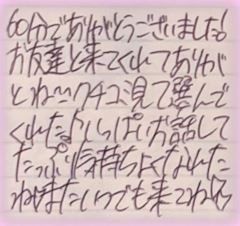 60分でありがとうございました!
お友達と来てくれてありが
とね〜クチコミ見て選んで
くれたなんていっぱいお話して
たっぷり気持ちよくなれた
ねまたいつでも来てね